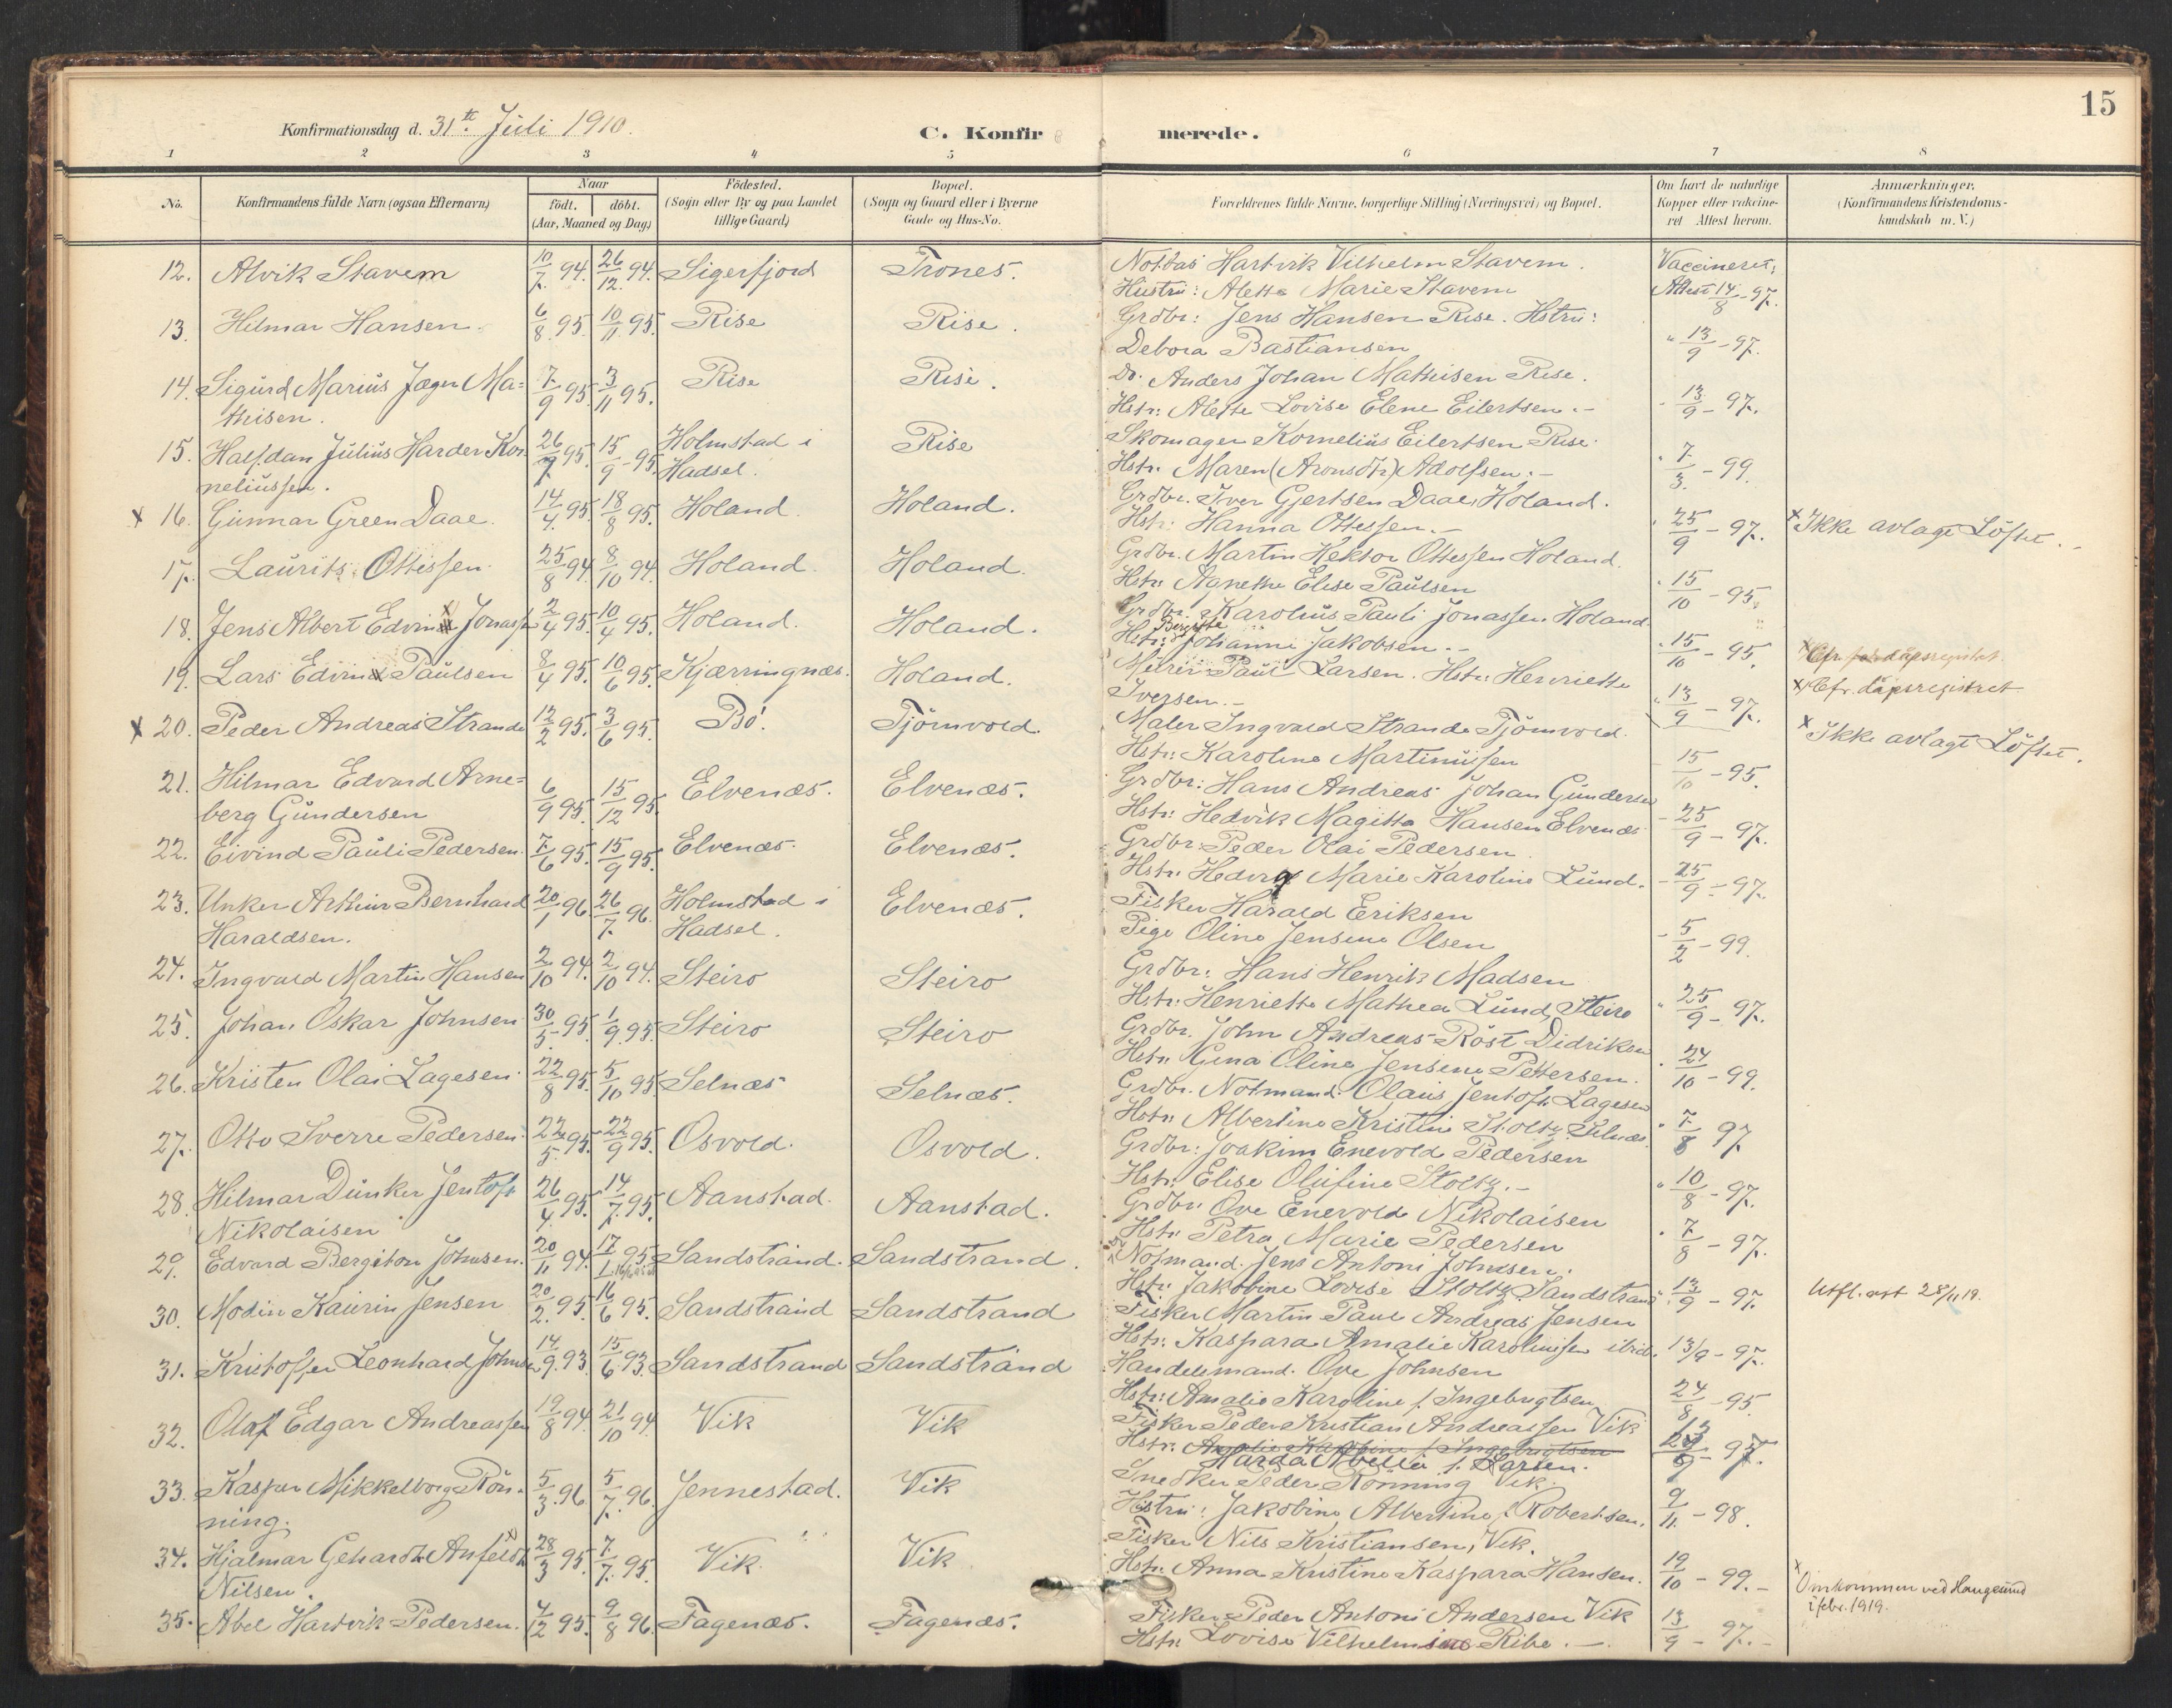 15
Konfirmationsdag d. 31te Juli 1910.
C. Konfirmerede.
1 2 3 4 5 6 7 8
No.
Konfirmandens fulde Navn (ogsaa Efternavn)
Naar
födt. döbt.
(Aar, Maaned og Dag)
Födested.
(Sogn eller By og paa Landet
tillige Gaard)
Bopæl.
(Sogn og Gaard eller i Byerne
Gade og Hus-No.
Forældrenes fulde Navne, borgerlige Stilling (Næringsvei) og Bopæl.
Om havt de naturlige
Kopper eller vakcine-
ret Attest herom.
Anmærkninger.
(Konfirmandens Kristendoms-
kundskab m. V.)
12. Alvik Stavem 10/7. 94. 26/12. 94. Sigerfjord Trones. Notbas Hartvik Vilhelm Stavem. Vaccineret,
Hustru: Aletta Marie Stavem Attest 14/8 - 97.
13. Hilmar Hansen. 6/8. 95. 10/11. 95. Rise Rise. Grdbr: Jens Hansen Rise. Hstru:
Debora Bastiansen " 13/9 - 97.
14. Sigurd Marius Jæger Ma= 7/9 95. 3/11 95. Rise Rise. Do. Anders Johan Mathisen Rise.
thisen. Hstr: Alette Lovise Elene Eilertsen.- " 13/9 - 97.
15. Halfdan Julius Harder Kor- 26/7 95. 15/9 - 95. Holmstad i Rise Skomager Kornelius Eilertsen Rise.
neliussen. Hadsel. Hstr. Maren (Aronsdtr) Adolfsen.- " 7/3. - 99.
x 16. Gunnar Green Daae. 14/4. 95. 18/8 95. Holand. Holand. Grdbr. Iver Gjertsen Daae, Holand.
Hstr: Hanna Ottessen.- " 25/9 - 97. x Ikke avlagt Löftet.
17. Laurits Ottessen. 25/8 94. 8/10 94. Holand. Holand. Grdbr. Martin Hektor Ottessen Holand.
Hstr: Agnethe Elise Paulsen " 15/10 - 95.
18. Jens Albert Edvin x Jonassen 2/4 95. 10/4 95. Holand. Holand. Grdbr. Karolius Pauli Jonassen Holand
Hstr: Birgitte Johanne Jakobsen.- " 15/10 - 95. x Cfr. dåpsregistret.
19. Lars Edvin x Paulsen 8/4 95. 10/6 95. Kjærringnæs. Holand. Murer Paul Larsen. Hstr: Henriette
Iversen.- " 13/9 - 97. x) Cfr. dåpsregistret
x 20. Peder Andreas Strande 12/2 95. 3/6 95. Bö. Tjörnvold. Maler Ingvald Strande Tjörnvold.
Hstr: Karoline Martinussen 15/10 - 95. x Ikke avlagt Löftet.
21. Hilmar Edvard Arne= 6/9 95. 15/12 95. Elvenæs. Elvenæs. Grdbr: Hans Andreas Johan Gundersen
berg Gundersen Hstr: Hedvik Magitta Hansen Elvenæs. - 25/9 - 97.
22. Eivind Pauli Pedersen. 7/6 95. 15/9 95. Elvenæs. Elvenæs. Grdbr. Peder Olai Pedersen.
Hstr. Hedvig Marie Karoline Lund. - 25/9 - 97.
23. Unker Arthur Bernhard 20/1 96. 26/7. 96. Holmstad i Elvenæs. Fisker Harald Eriksen
Haraldsen. Hadsel. Pige Oline Jensine Olsen - 5/2 - 99.
24. Ingvald Martin Hansen 2/10 94. 2/10 94. Steiro Steiro Grdbr: Hans Henrik Madsen
Hstr: Henriette Mathea Lund, Steiro " 25/9 - 97.
25. Johan Oskar Johnsen 30/5. 95. 1/9. 95. Steiro Steiro Grdbr. John Andreas Röst Didriksen
Hstr. Gina Oline Jensine Pettersen. " 24/10 - 99.
26. Kristen Olai Lagesen. 22/8 95. 5/10 95. Selnæs Selnæs. Grdbr. Notmand. Olaus Jentoft Lagesen
Hstr. Albertine Kristine Stoltz Selnæs. " 7/8 97.
27. Otto Sverre Pedersen. 22/5. 95. 22/9 95. Osvold. Osvold. Grdbr: Joakim Enevold Pedersen
Hstr: Elise Olufine Stoltz.- " 10/8 - 97.
28. Hilmar Dunker Jentoft 26/4. 95. 14/7. 95. Aanstad. Aanstad. Grdbr. Ove Enevold Nikolaisen
Nikolaisen Hstr Petra Marie Pedersen " 7/8 - 97.
29. Edvard Bergiton Johnsen. 20/11. 94. 17/1. 95. Sandstrand. Sandstrand. Notmand. Jens Antoni Johnsen.
Hstr: Jakobine Lovise Stoltz. Sandstrand " 13/9 - 97. Utfl.att 28/11 19.
30. Modin Kaurin Jensen 20/2. 95. 16/6 95. Sandstrand Sandstrand Fisker Martin Paul Andreas Jensen
Hstr: Kaspara Amalie Karolinusen ibid. 13/9 - 97.
31. Kristoffer Leonhard Johnsen 14/9. 93. 15/6 93. Sandstrand Sandstrand Handelsmand. Ove Johnsen
Hstr: Amalie Karoline f. Ingebrigtsen 24/8 - 95.
32. Olaf Edgar Andreassen 19/8 94. 21/10 94. Vik Vik Fisker Peder Kristian Andreassen Vik
Hstr: Amalie Karoline f. Ingebrigtsen 13/9 - 97.
Harda Abella f. Larsen.
33. Kasper Mikkelborg Rön- 5/3. 96. 5/7. 96. Jennestad. Vik Snedker Peder Rönning Vik.
ning. Hstru: Jakobine Albertine f. Robertsen. 9/11. - 98.
34. Hjalmar Gehardt Anfeldt x 28/3 95. 7/7. 95. Vik. Vik Fisker Nils Kristiansen, Vik.
Nilsen. Hstr: Anna Kristine Kaspara Hansen. 19/10 - 99.- x Omkommen ved Haugesund
i febr. 1919.
35. Abel Hartvik Pedersen. 4/12 95. 9/8 96. Fagenæs. Fagenæs. Fisker Peder Antoni Andersen Vik
Hstr. Lovise Vilhelmine Ribe.- 13/9 - 97.-